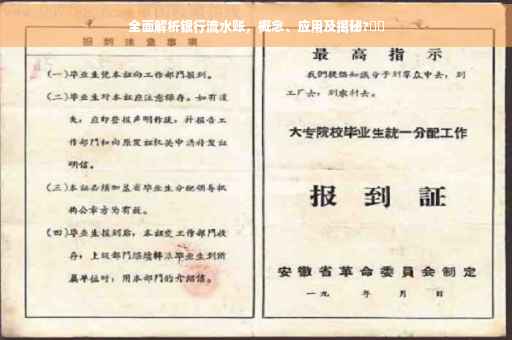 全面解析银行流水账，概念、应用及揭秘?
报到注意事项
(一)毕业生凭本证向工作部门报到。
(二)毕业生对本证应注意保存。如有遗
失，应即登报声明作废，并报告工
作部门和向原发证机关申请补发证
明信。
(三)本证必须加盖省毕业生分配领导机
构公章方为有效。
(四)毕业生报到后，本证交工作部门收
存；上级部门继续转派毕业生到所
属单位时，用本部门的介绍信。
最高指示
我们提倡知识分子到群众中去，到
工厂去，到农村去。
大专院校毕业生統一分配工作
报到証
安徽省革命委員会制定
一九 年 月 日